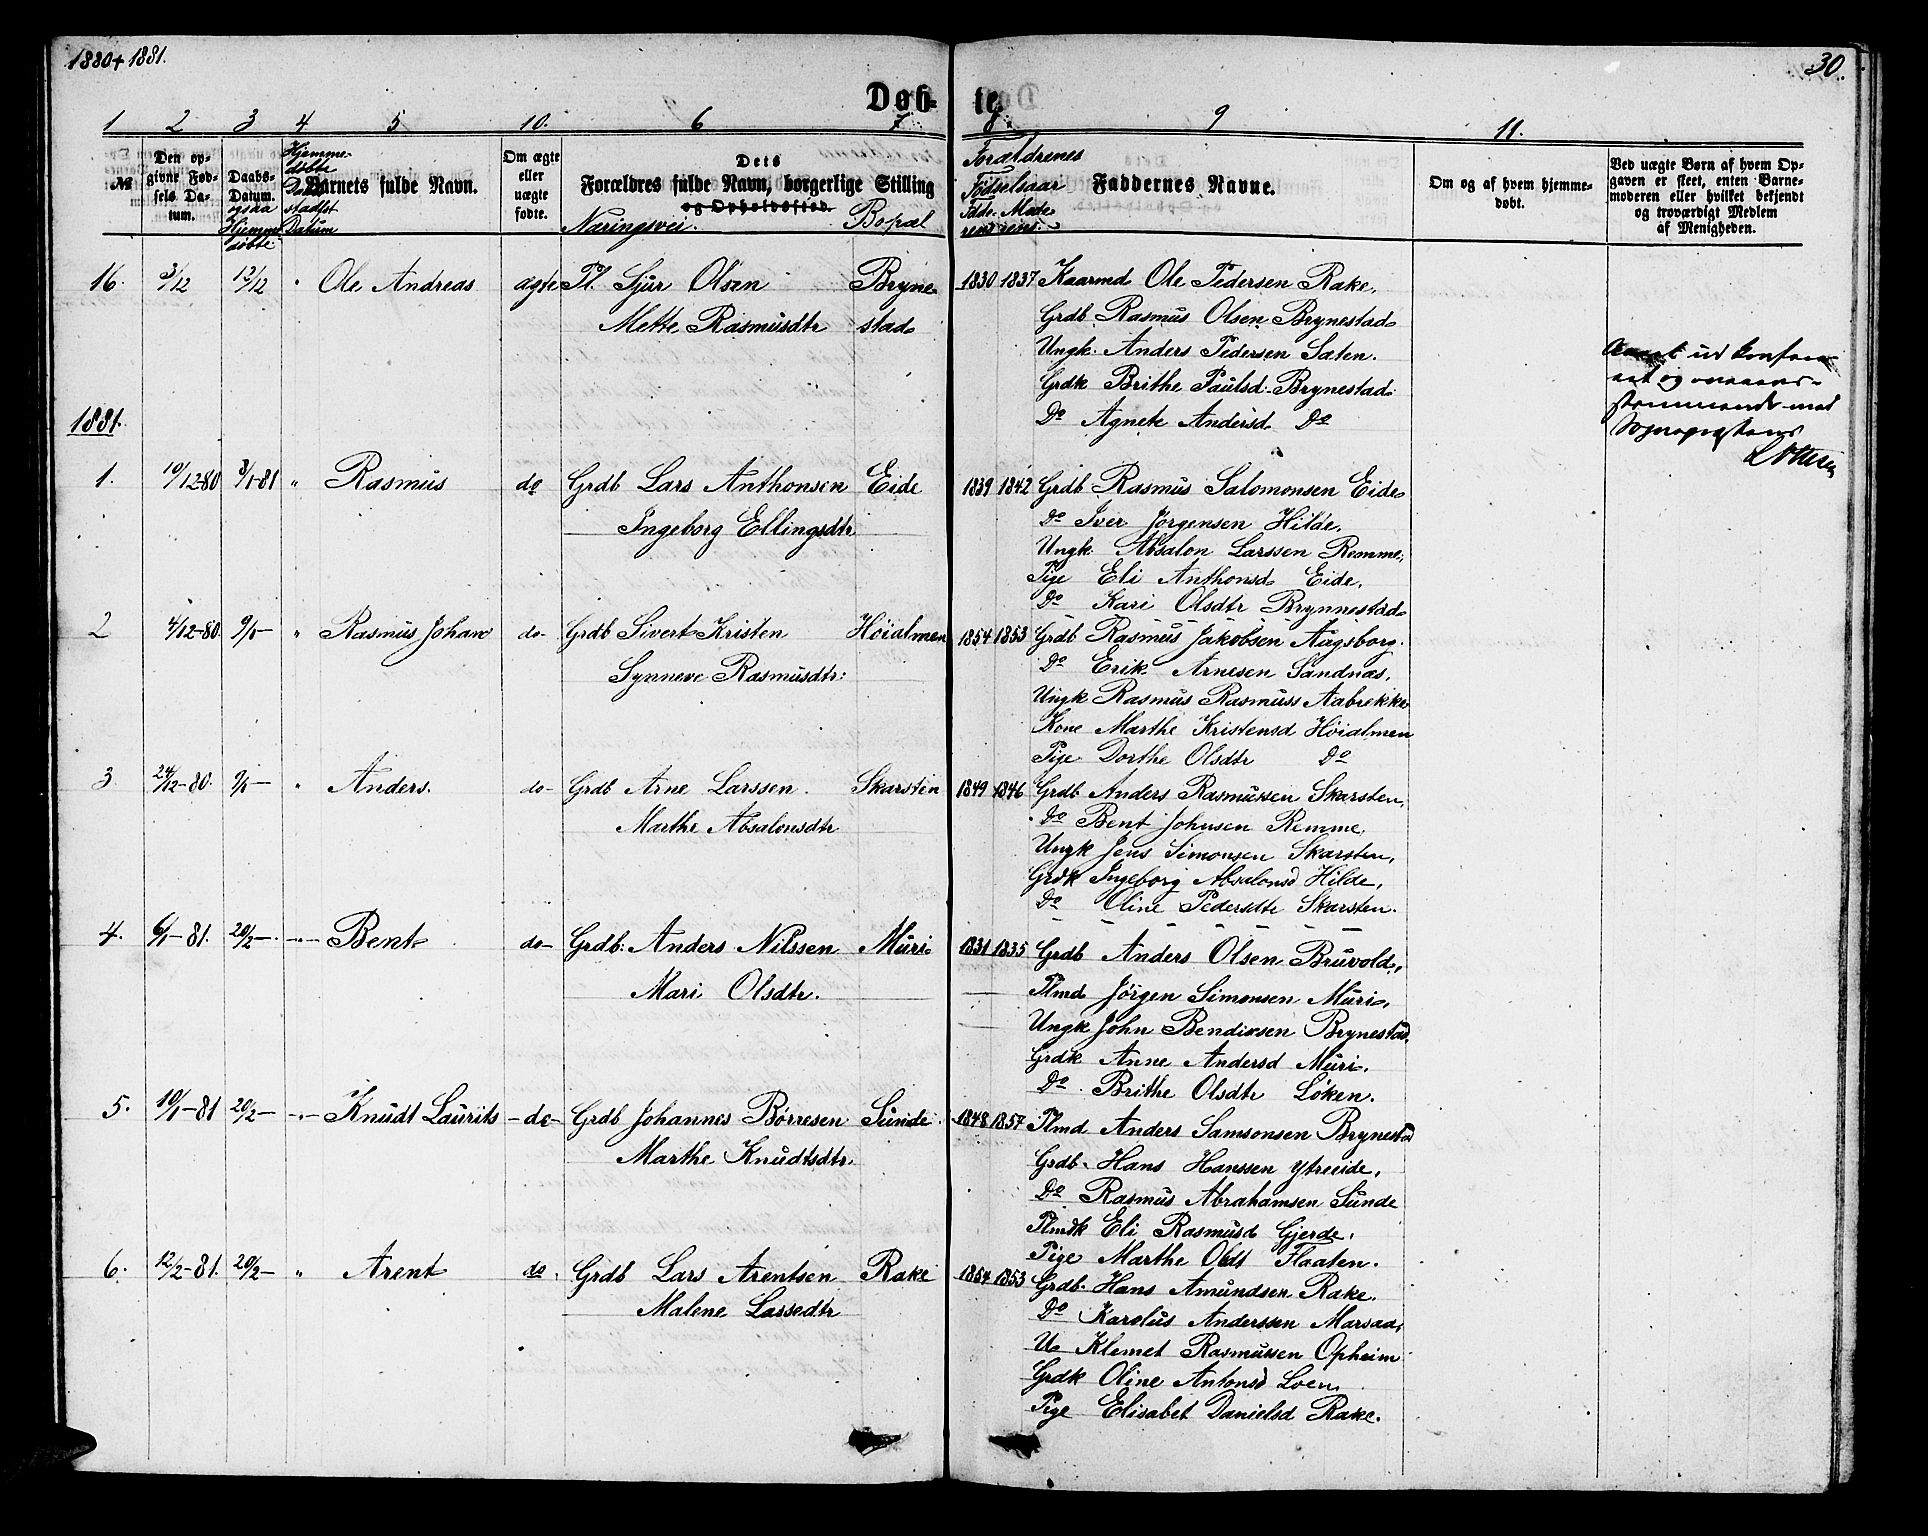 1880 + 1881.
30.
Døb- te.
1 2 3 4 5 10. 6 7 8. 9 11.
No
Den op-
givne Fød-
sels Da-
tum.
Daabs-
Datum.
ogsaa
Hjemme
døbte
Hjemme-
døbte
Daab
stadfst
Datum
Barnets fulde Navn.
Om ægte
eller
uægte
fødte.
Dets
Forældres fulde Navn, borgerlige Stilling
og Opholdssted.
Næringsvei. Bopæl
Forældrenes
Fødselsaar
Fade- Mode-
rens rens.
Faddernes Navne.
Om og af hvem hjemme-
døbt.
Ved uægte Børn af hvem Op-
gaven er skeet, enten Barne-
moderen eller hvilket bekjendt
og troværdigt Medlem
af Menigheden.
16. 3/12 12/12 " Ole Andreas ægte Pl. Sjur Olsen Bryne- 1830 1837 Kaarmd Ole Pedersen Rake.
Mette Rasmusdtr stad Grdb Rasmus Olsen Brynestad
Ungk. Anders Pedersen Sæten.
Grdk Brithe Paulsd. Brynestad.
Do Agnete Andersd Do
og overens-
stemmende med
Sognepræstens
1881.
1. 10/12-80 3/1-81 " Rasmus do Grdb Lars Anthonsen Eide 1839 1842 Grdb Rasmus Salomonsen Eide
Ingeborg Ellingsdtr Do Iver Jörgensen Hilde.
Ungk. Absalon Larssen Remme.
Pige Eli Anthonsd Eide.
Do Kari Olsdtr Brynnestad
2 4/12-80. 9/1- " Rasmus Johan do- Grdb Sivert Kristen Höialmen 1854 1853 Grdb Rasmus Jakobsen Augsborg.
Synneve Rasmusdtr: Do Erik Arnesen Sandnæs.
Ungk Rasmus Rasmuss Aabrekke
Kone Marthe Kristensd Höialmen
Pige Dorthe Olsdtr Do
3. 24/12-80. 9/1- " Anders. do- Grdb Arne Larssen. Skarsten 1849 1846 Grdb Anders Rasmussen Skarsten,
Marthe Absalonsdtr Do Bent Johnsen Remme.
Ungk Jens Simonsen Skarsten,
Grdk Ingeborg Absalonsd Hilde,
Do Oline Pedersdtr Skarsten.
4. 6/1-81. 20/2-. -"- Bent do- Grdb. Anders Nilssen Muri 1831 1835 Grdb Anders Olsen Bruvold,
Mari Olsdtr. Plmd Jörgen Simonsen Muri,
Ungk John Bendixsen Brynestad.
Grdk Anne Andersd Muri.
Do. Brithe Olsdtr Löken.
5. 10/1-81 20/2- -"- Knudt Laurits -do- Grdb Johannes Börresen Sunde. 1848 1857 Plmd Anders Samsonsen Brynestad
Marthe Knudtsdtr. Grdb. Hans Hanssen Ytreeide.
Do Rasmus Abrahamsen Sunde
Plmdk Eli Rasmusd Gjerde.
Pige Marthe Olsdt Flaaten.
6. 12/2-81. 20/2- " Arent do Grdb Lars Arentsen Rake 1854 1853 Grdb. Hans Amundsen Rake.
Malene Larsedtr Do Karolus Anderssen Marsaa,
U. Klemet Rasmussen Opheim
Grdk Oline Antonsd Loen.
Pige Elisabet Danielsd Rake.